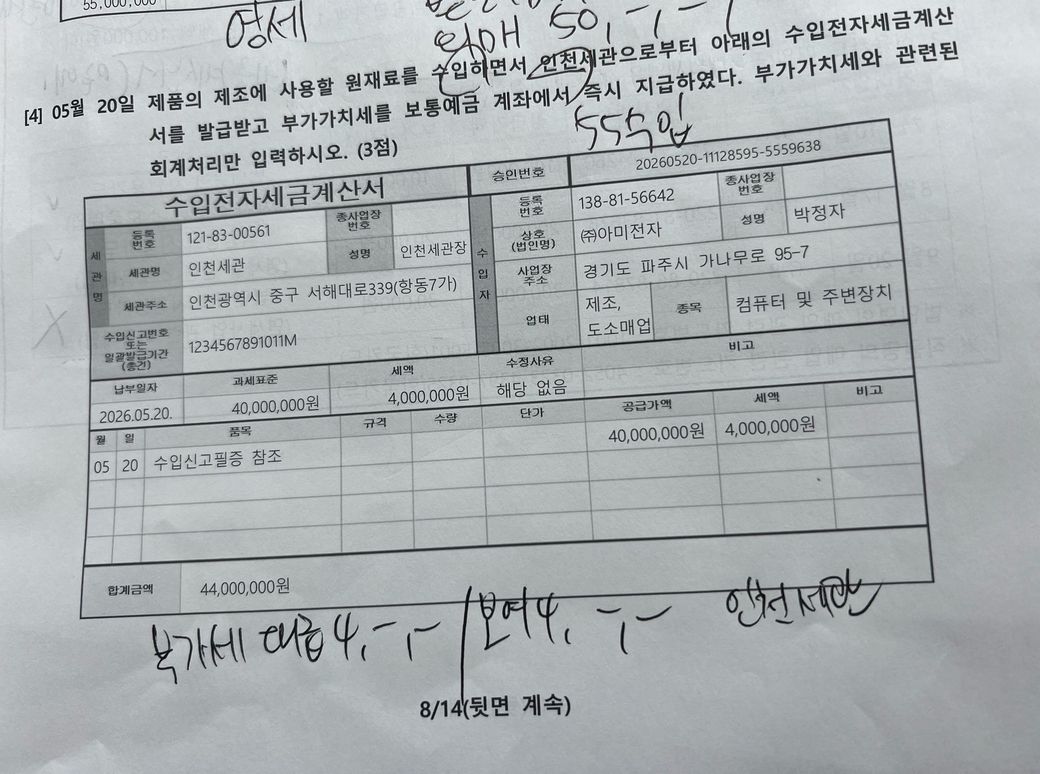 55,000,000
영세
원매 50,-,-
[4] 05월 20일 제품의 제조에 사용할 원재료를 수입하면서 인천세관으로부터 아래의 수입전자세금계산
서를 발급받고 부가가치세를 보통예금 계좌에서 즉시 지급하였다. 부가가치세와 관련된
회계처리만 입력하시오. (3점)
55수입
수입전자세금계산서 승인번호 20260520-11128595-5559638
세관명 등록번호 121-83-00561 종사업장번호 수입자 등록번호 138-81-56642 종사업장번호
세관명 인천세관 성명 인천세관장 상호(법인명) ㈜아미전자 성명 박정자
세관주소 인천광역시 중구 서해대로339(항동7가) 사업장주소 경기도 파주시 가나무로 95-7
수입신고번호 또는 일괄발급기간(총건) 1234567891011M 업태 제조, 도소매업 종목 컴퓨터 및 주변장치
납부일자 과세표준 세액 수정사유 비고
2026.05.20. 40,000,000원 4,000,000원 해당 없음
월 일 품목 규격 수량 단가 공급가액 세액 비고
05 20 수입신고필증 참조 40,000,000원 4,000,000원
합계금액 44,000,000원
부가세 대급 4,-,- / 보예 4,-,- 인천세관
8/14(뒷면 계속)